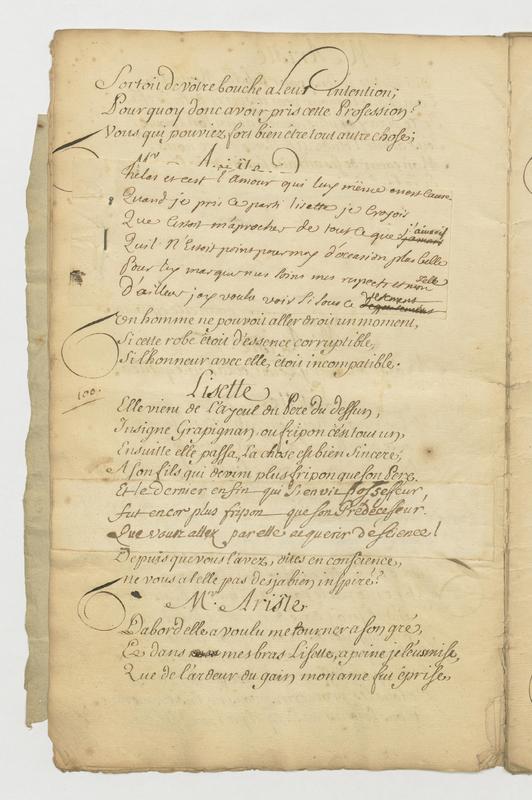 Sortoit de vôtre bouche a leur intention;
Pourquoy donc avoir pris cette Profession?
Vous qui pouviez fort bien être tout autre chose;
Mr Ariste
helas et cest l'amour qui luy même en est cause
Quand je pris ce parti lisette je croyois
Que cestoit m'aprocher de tout ce que j'aimois
Quil N'Estoit point pour moy d'ocasion plus belle
Pour luy marquer mes soins mes respects et mon zelle
D'ailleurs j'ay voulu voir si sous ce vetement
Un homme ne pouvoit aller droit un moment,
Si cette robe êtoit d'essence corruptible,
Si l'honneur avec elle, étois incompatible.
100.
Lisette
Elle vient de l'ayeul du Pere du deffun,
Insigne Grapignan, ou fripon c'est tout un,
Ensuitte elle passa, la chose est bien sincere,
A son fils qui devint plus fripon que son Pere.
Et le dernier enfin qui s'en vit possesseur,
fut encor plus fripon que son Prédecesseur.
Que vous allez par elle acquerir de science!
Depuis que vous l'avez, dites en conscience,
ne vous a t'elle pas desja bien inspiré?
Mr. Ariste
D'abord elle a voulu me tourner a son gré,
Et dans mes bras Lisette, a peine je l'eus mise,
Que de l'ardeur du gain mon ame fut éprise,